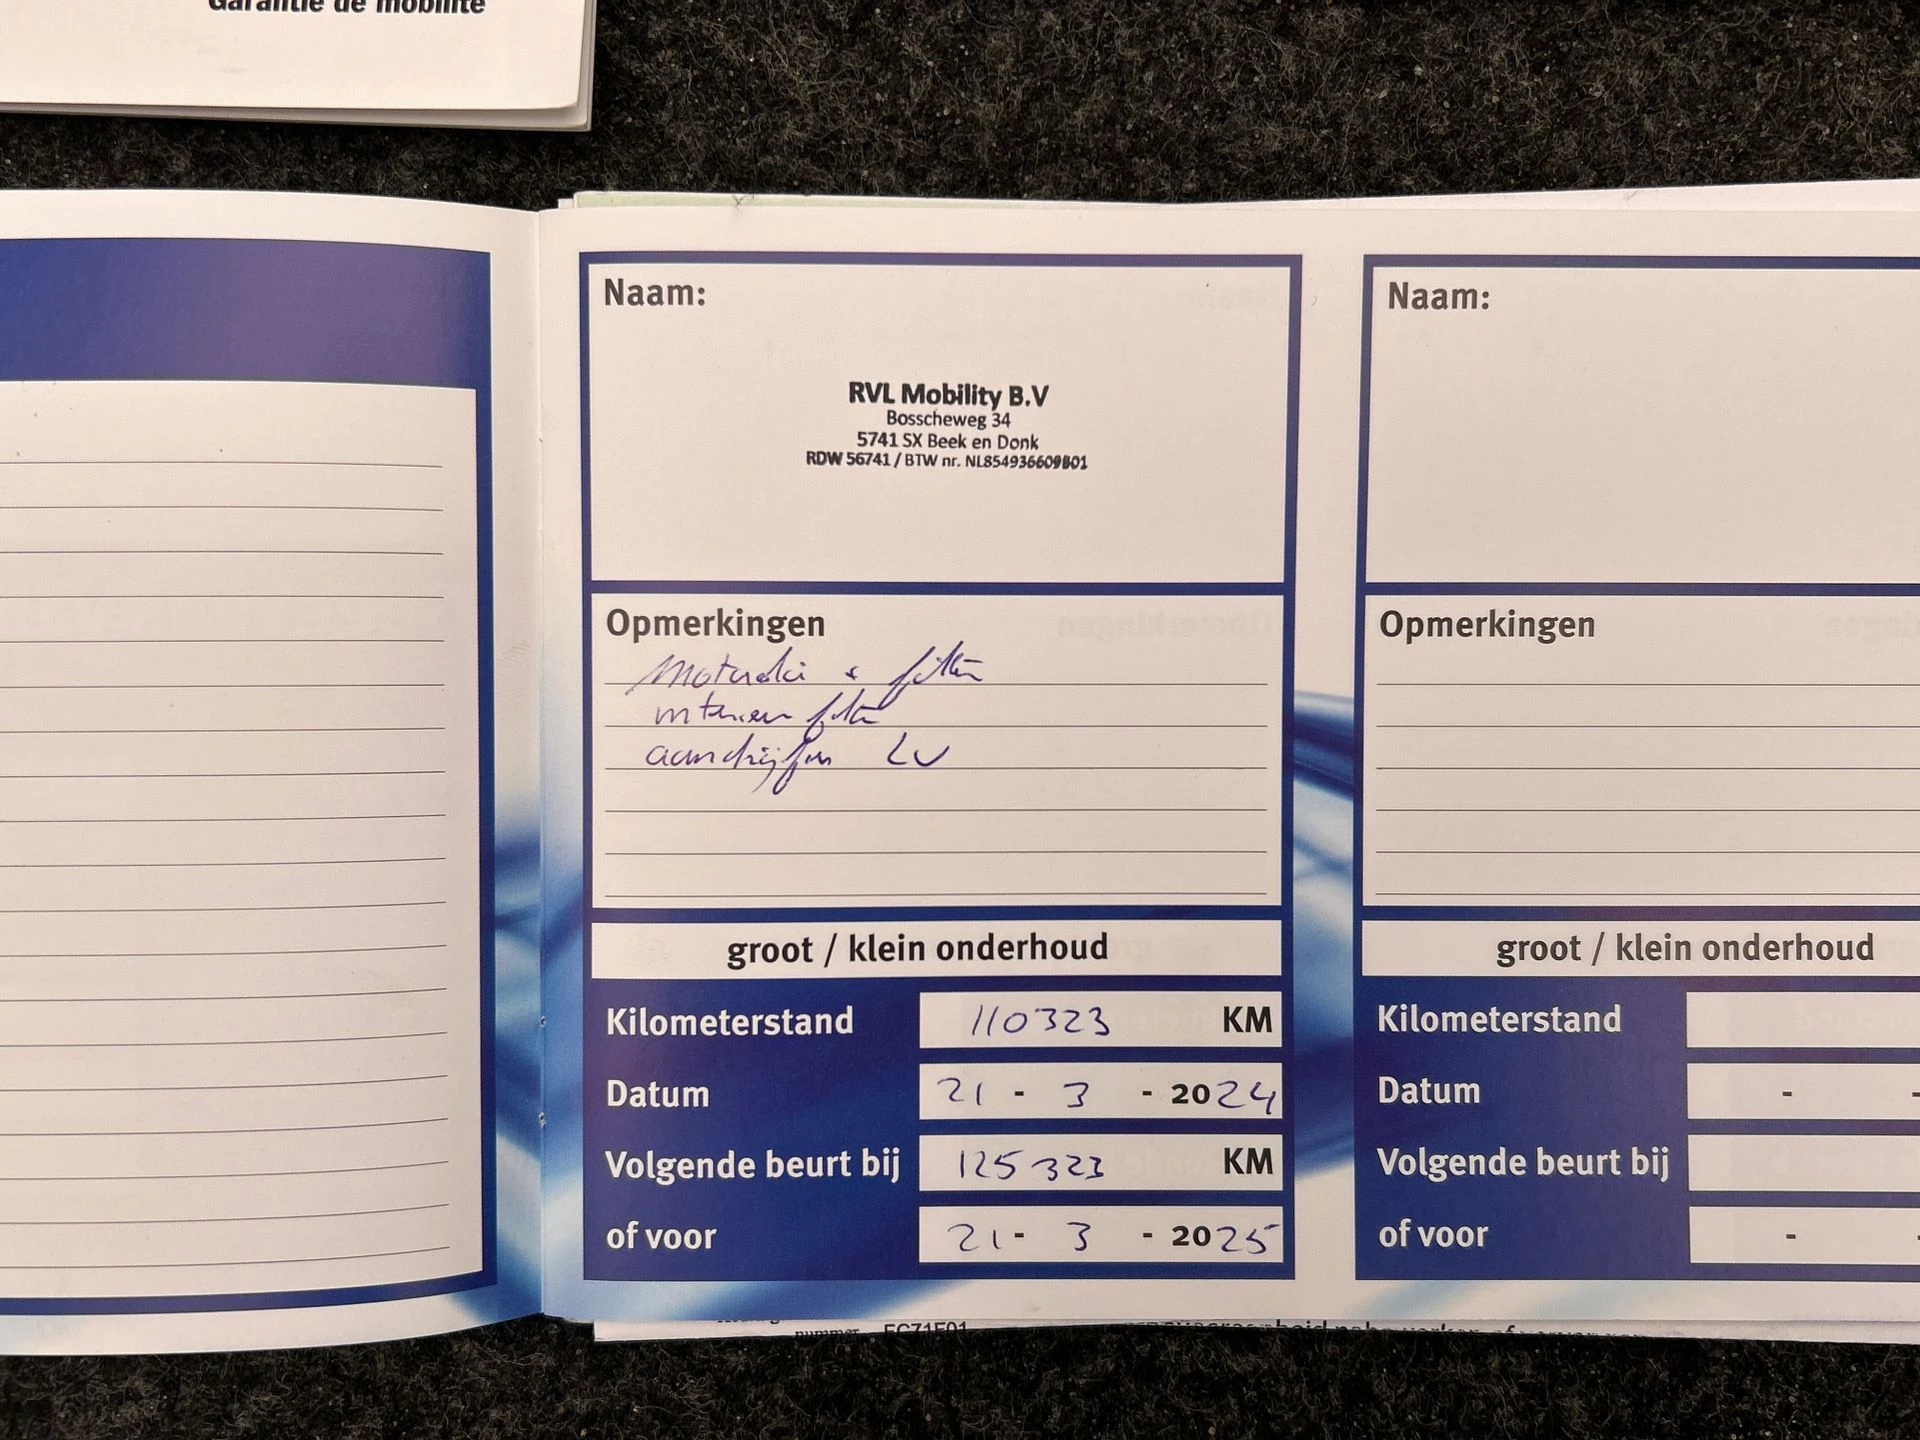 Garantie de mobilité
Naam:
RVL Mobility B.V
Bosscheweg 34
5741 SX Beek en Donk
RDW 56741 / BTW nr. NL854936609B01
Opmerkingen
Motorolie + filter
interieur filter
aandrijfas LV
groot / klein onderhoud
Kilometerstand 110323 KM
Datum 21 - 3 - 2024
Volgende beurt bij 125323 KM
of voor 21 - 3 - 2025
Naam:
Opmerkingen
groot / klein onderhoud
Kilometerstand
Datum - -
Volgende beurt bij
of voor - -
nummer